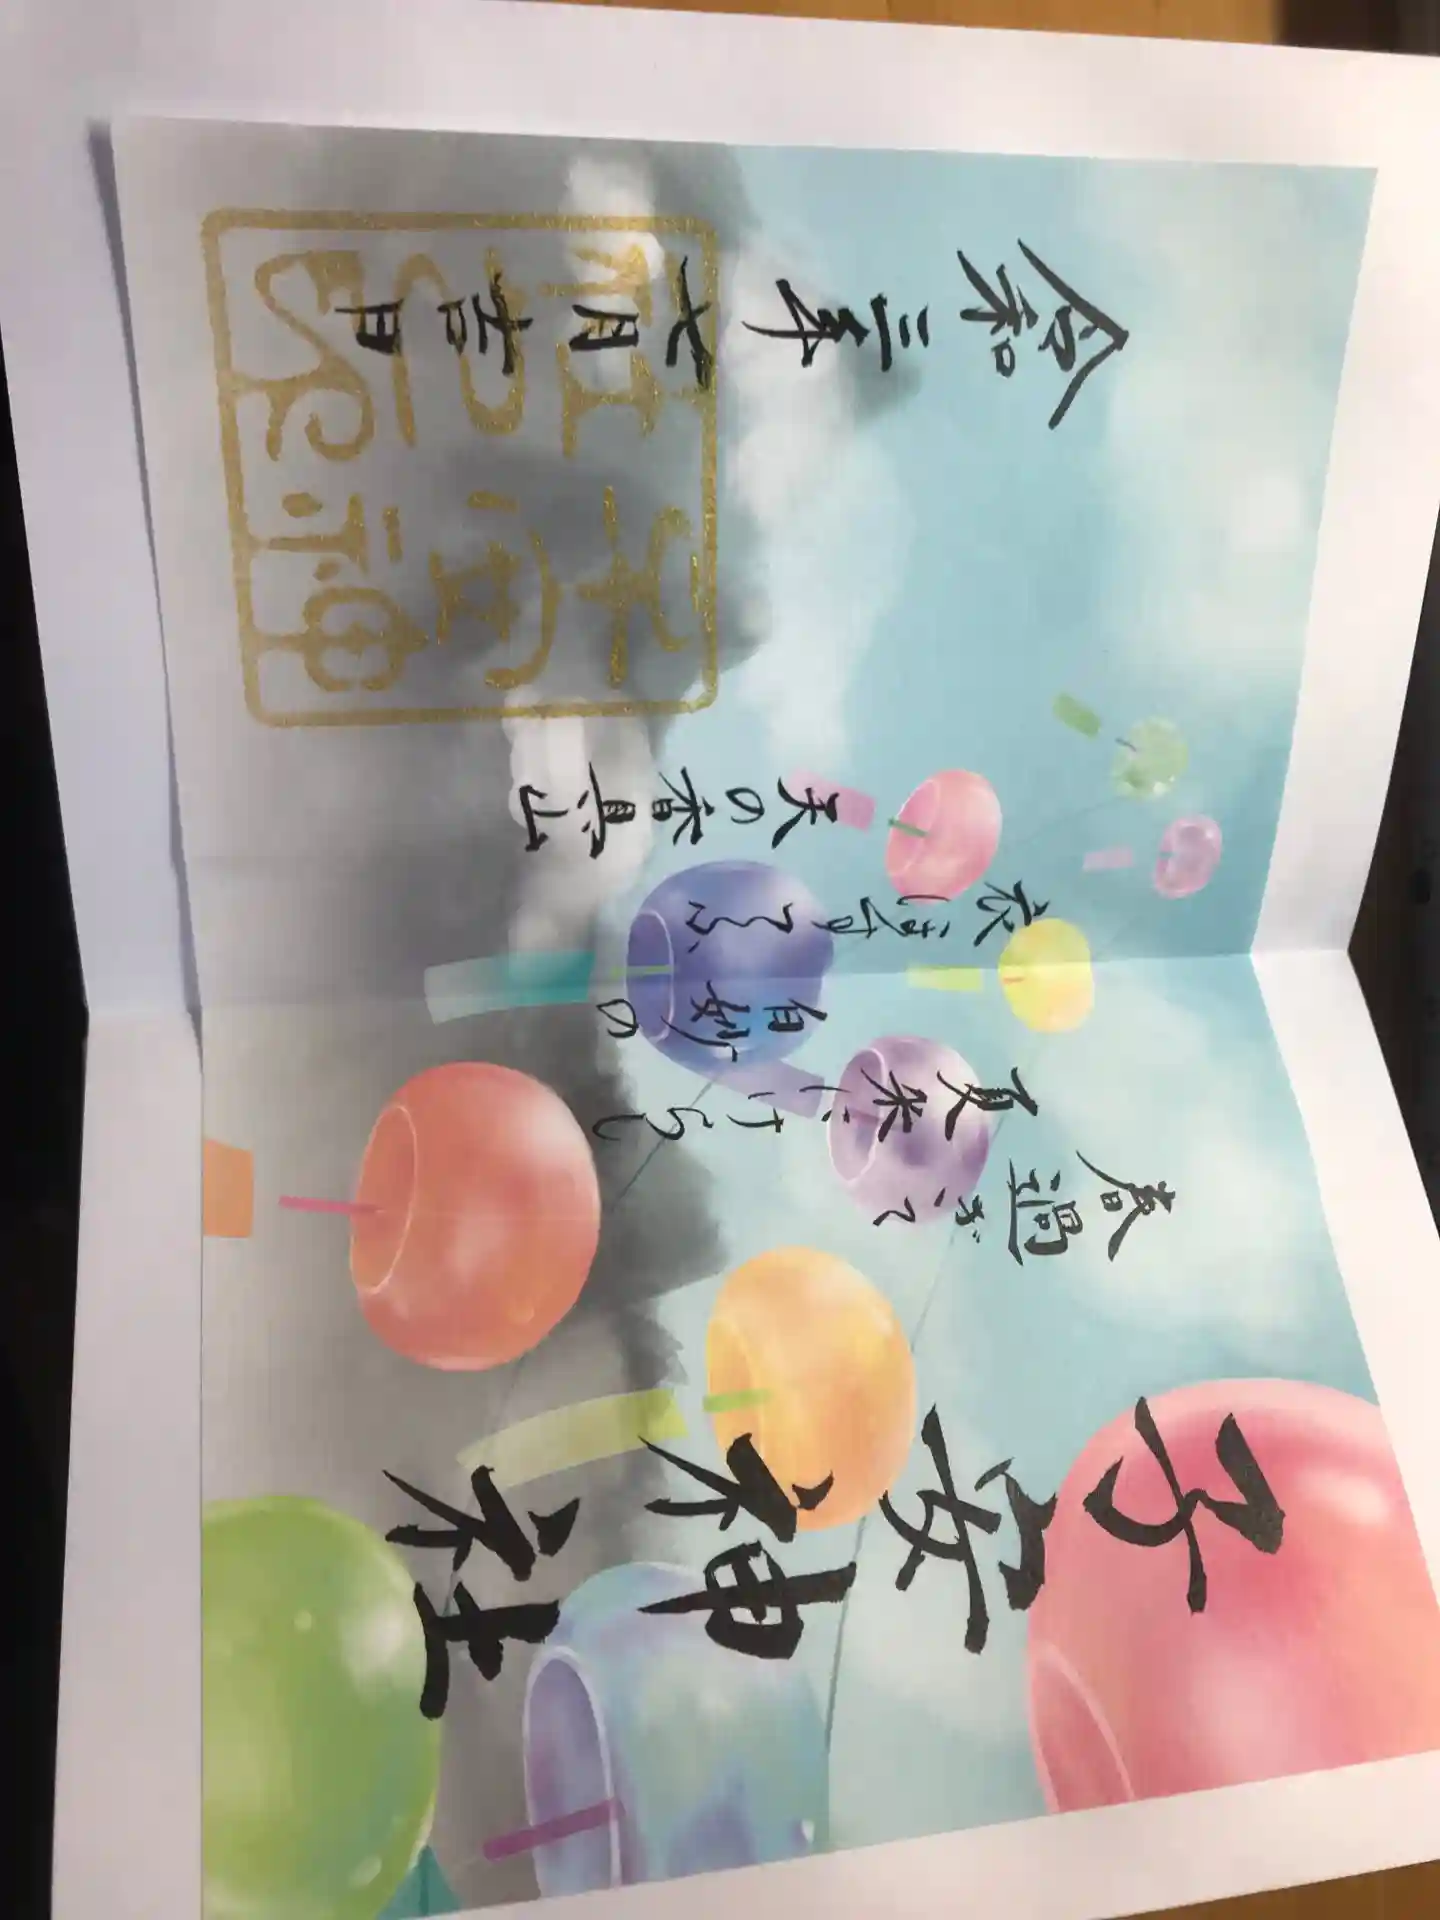 子安神社
春過ぎて
夏来にけらし
白妙の
衣ほすてふ
天の香具山
令和三年七月吉日